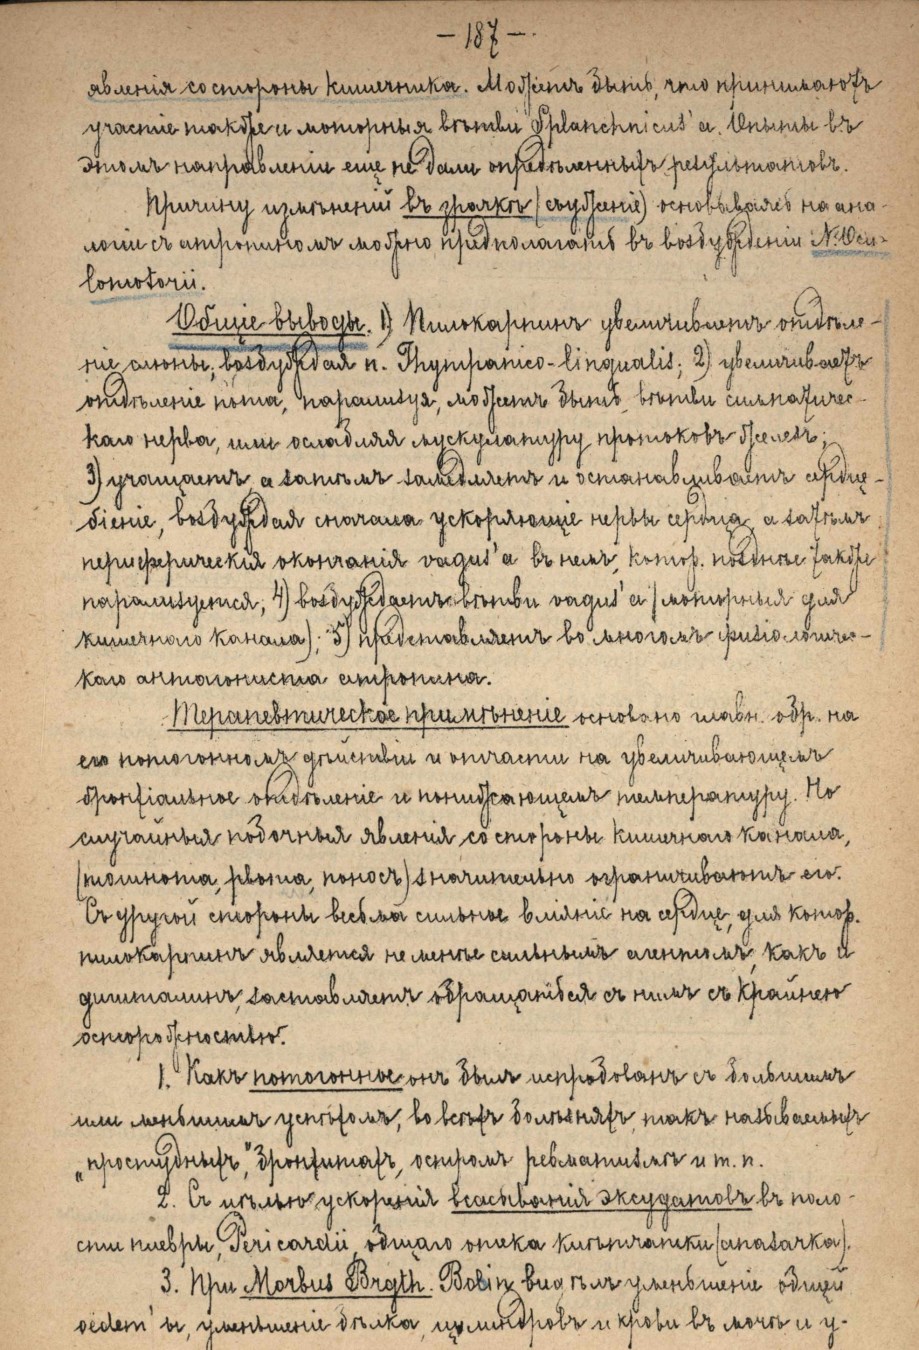 — 187 —
явленія со стороны кишечника. Можетъ быть, что принимаютъ
участіе также и моторныя вѣтви Splanchnicus'а. Опыты въ
этомъ направленіи еще не дали опредѣленныхъ результатовъ.
Причину измѣненій въ зрачкѣ (съуженіе) основываясь на ана-
логіи съ атропиномъ можно предполагать въ возбужденіи N. Ocu-
lomotorii.
Общіе выводы. 1) Пилокарпинъ увеличиваетъ отдѣле-
ніе слюны, возбуждая n. Thympanico-lingualis; 2) увеличиваетъ
отдѣленіе пота, парализуя, можетъ быть, вѣтви симпатичес-
каго нерва, или ослабляя мускулатуру протоковъ железъ;
3) учащаетъ, а затѣмъ замедляетъ и останавливаетъ сердце-
біеніе, возбуждая сначала ускоряющіе нервы сердца, а затѣмъ
периферическія окончанія vagus'а въ немъ, котор. позднѣе также
парализуется; 4) возбуждаетъ вѣтви vagus'а (моторныя для
кишечнаго канала); 5) представляетъ во многомъ физіологичес-
каго антагониста атропина.
Терапевтическое примѣненіе основано главн. обр. на
его потогонномъ дѣйствіи и отчасти на увеличивающемъ
бронхіальное отдѣленіе и понижающемъ температуру. Но
случайныя побочныя явленія со стороны кишечнаго канала,
(тошнота, рвота, поносъ) значительно ограничиваютъ его.
Съ другой стороны весьма сильное вліяніе на сердце, для котор.
пилокарпинъ является не менѣе сильнымъ агентомъ, какъ и
дигиталинъ, заставляетъ обращаться съ нимъ съ крайнею
осторожностью.
1. Какъ потогонное онъ былъ испробованъ съ большимъ
или меньшимъ успѣхомъ, во всѣхъ болѣзняхъ, такъ называемыхъ
„простудныхъ", бронхитахъ, остромъ ревматизмѣ и т. п.
2. Съ цѣлью ускоренія всасыванія эксудатовъ въ поло-
сти плевры, Pericardii, общаго отека клѣтчатки (anasarka).
3. При Morbus Brgth. Bobin видѣлъ уменьшеніе общей
oedem'ы, уменьшеніе бѣлка, цилиндровъ и крови въ мочѣ и у-